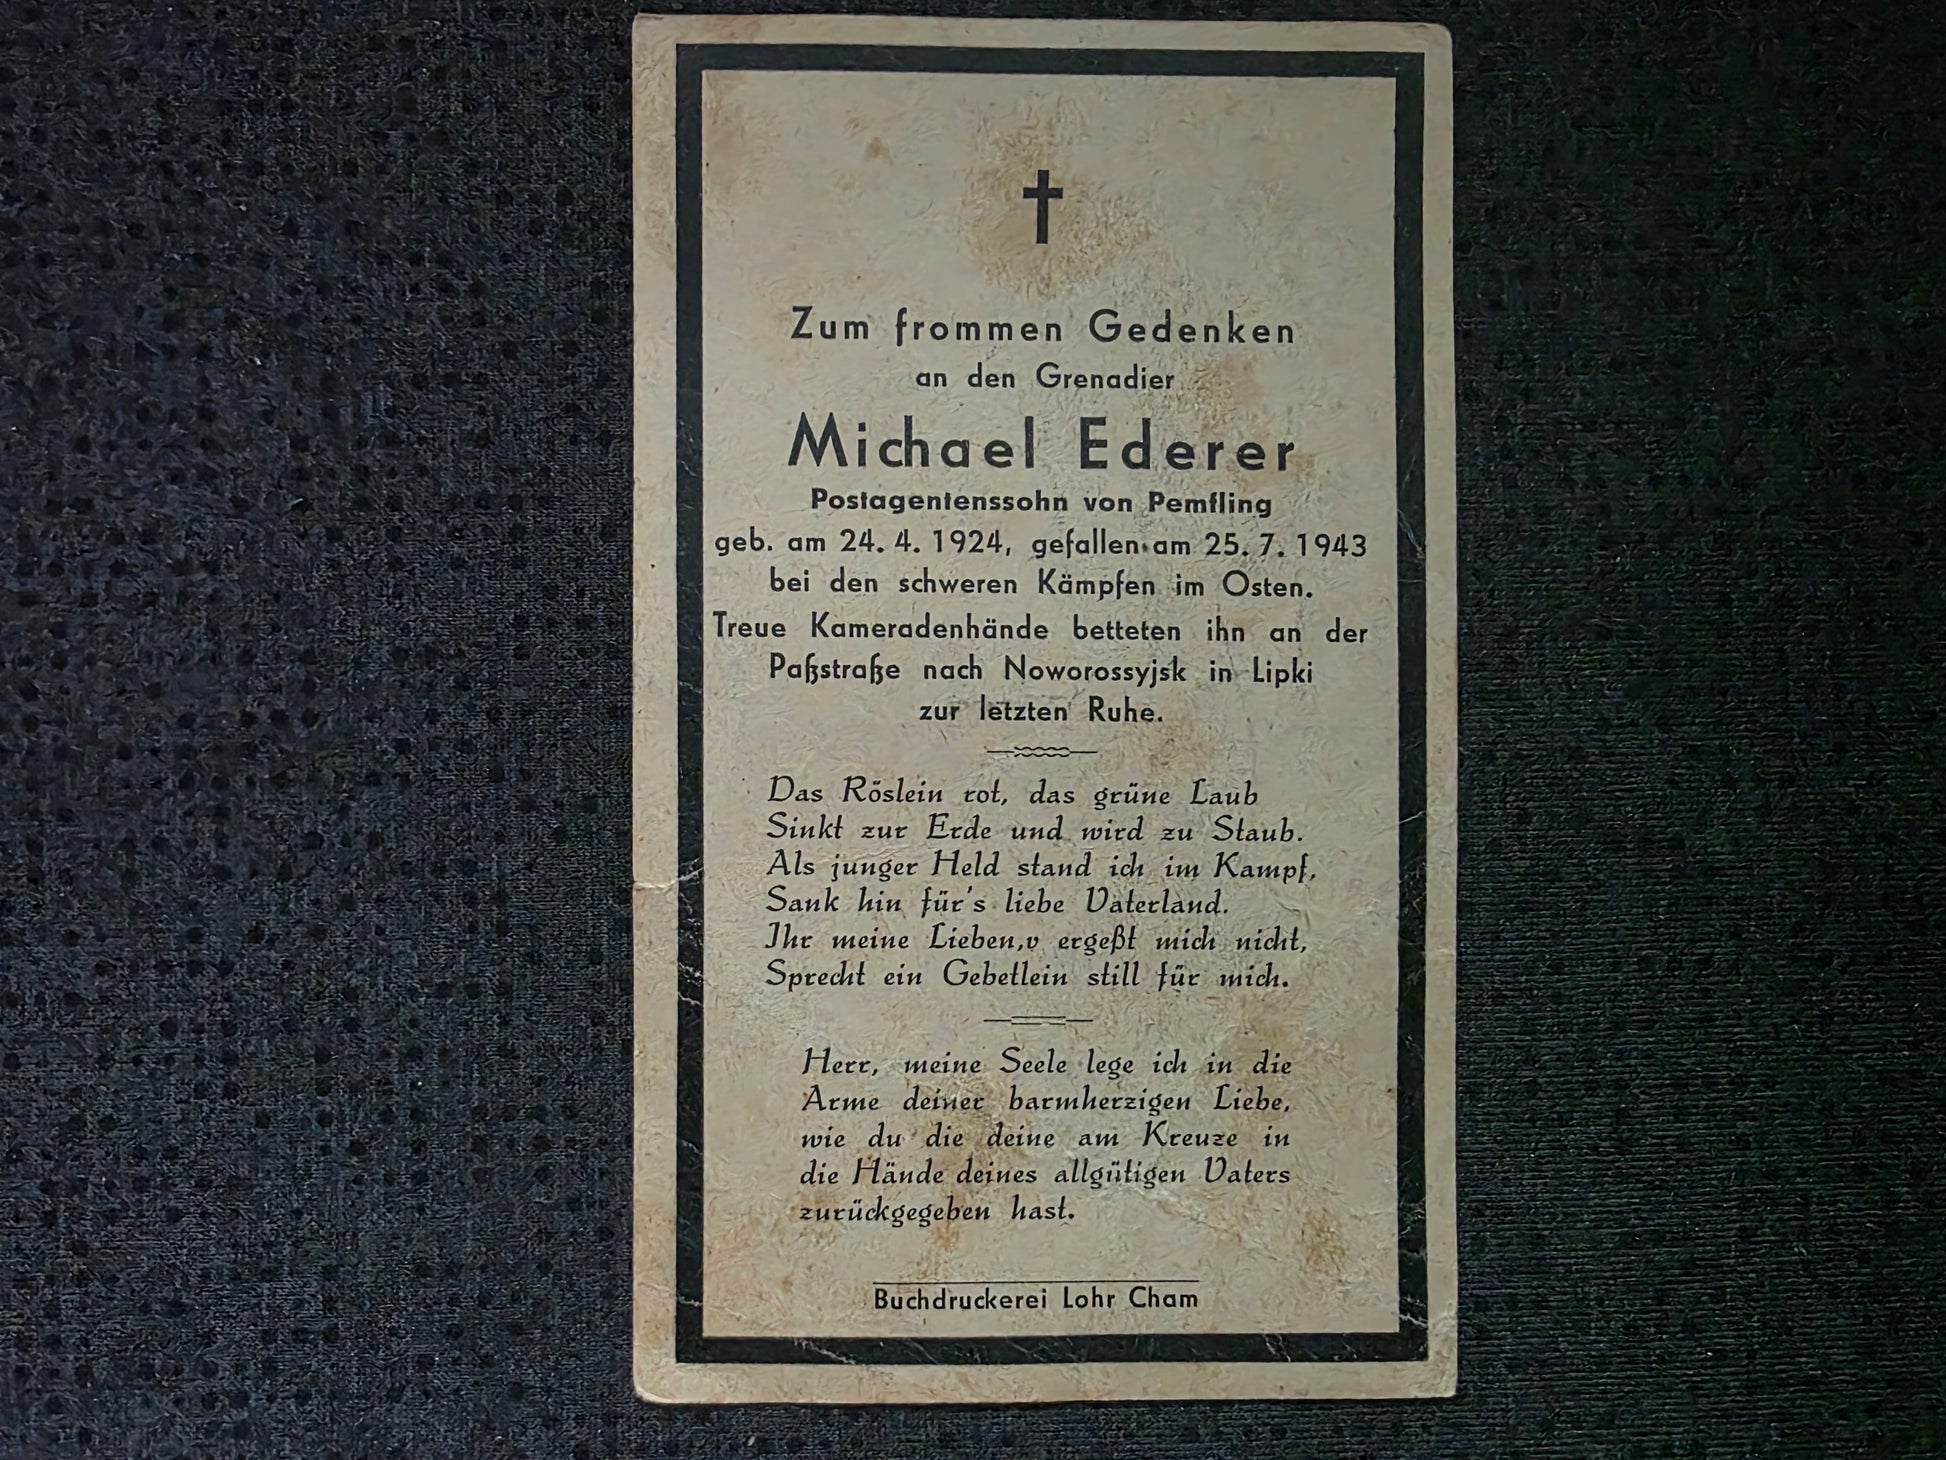 Zum frommen Gedenken
an den Grenadier
Michael Ederer
Postagentenssohn von Pemfling
geb. am 24. 4. 1924, gefallen am 25. 7. 1943
bei den schweren Kämpfen im Osten.
Treue Kameradenhände betteten ihn an der
Paßstraße nach Noworossyjsk in Lipki
zur letzten Ruhe.
Das Röslein rot, das grüne Laub
Sinkt zur Erde und wird zu Staub.
Als junger Held stand ich im Kampf,
Sank hin für's liebe Vaterland.
Ihr meine Lieben,v ergeßt mich nicht,
Sprecht ein Gebetlein still für mich.
Herr, meine Seele lege ich in die
Arme deiner barmherzigen Liebe,
wie du die deine am Kreuze in
die Hände deines allgütigen Vaters
zurückgegeben hast.
Buchdruckerei Lohr Cham